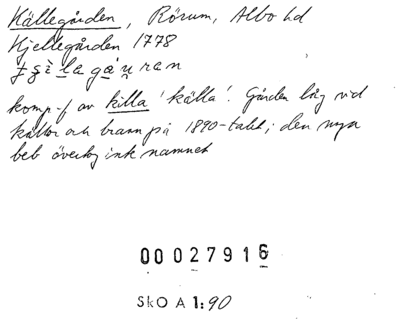 Källegården, Rörum, Albo hd
Kjellegården 1778
komp-f av killa 'källa'. Gården låg vid
källor och brann på 1890-talet; den nya
beb övertog ink namnet
00027916
SkO A 1:90